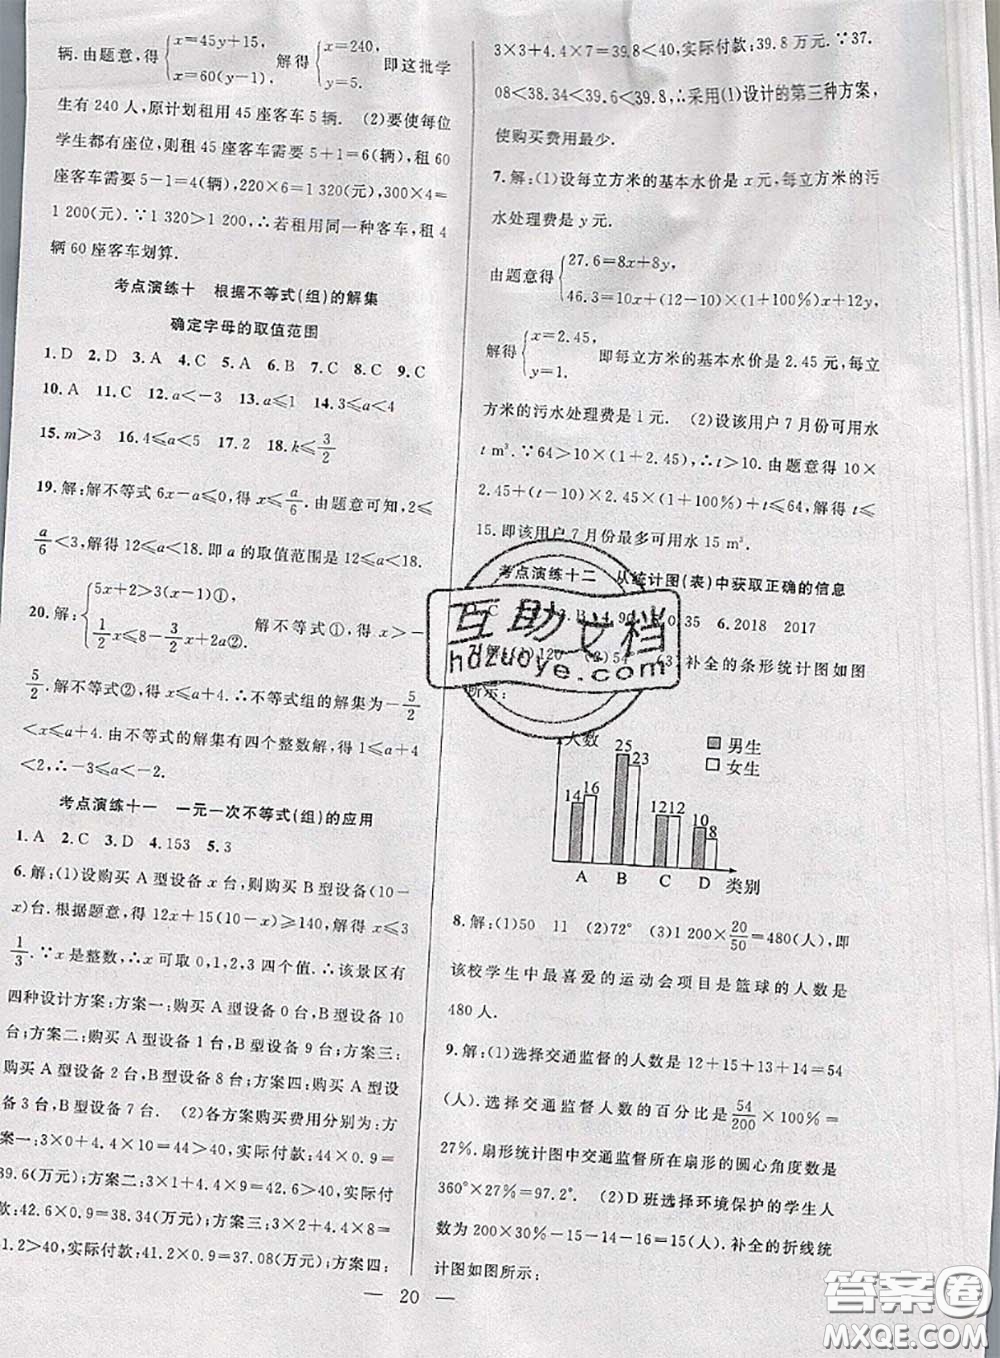 辆. 由题意, 得 {x=45y+15, x=60(y-1). 解得 {x=240, y=5. 即这批学
生有 240 人, 原计划租用 45 座客车 5 辆. (2)要使每位
学生都有座位, 则租 45 座客车需要 5+1=6(辆), 租 60
座客车需要 5-1=4(辆), 220×6=1 320(元), 300×4=
1 200(元). ∵1 320>1 200, ∴若租用同一种客车, 租 4
辆 60 座客车划算.
考点演练十 根据不等式(组)的解集
确定字母的取值范围
1. D 2. D 3. A 4. C 5. A 6. B 7. C 8. C 9. C
10. A 11. C 12. a<-3 13. a≤1 14. 3≤a<4
15. m>3 16. 4≤a<5 17. 2 18. k≤3/2
19. 解:解不等式 6x-a≤0, 得 x≤a/6. 由题意可知, 2≤
a/6<3, 解得 12≤a<18. 即 a 的取值范围是 12≤a<18.
20. 解: {5x+2>3(x-1)①, 1/2x≤8-3/2x+2a②. 解不等式①, 得 x>-
5/2. 解不等式②, 得 x≤a+4. ∴不等式组的解集为-5/2
<x≤a+4. 由不等式的解集有四个整数解, 得 1≤a+4
<2, ∴-3≤a<-2.
考点演练十一 一元一次不等式(组)的应用
1. A 2. C 3. D 4. 153 5. 3
6. 解:(1)设购买 A 型设备 x 台, 则购买 B 型设备(10-
x)台. 根据题意, 得 12x+15(10-x)≥140, 解得 x≤3
1/3. ∵x 是整数, ∴x 可取 0,1,2,3 四个值. ∴该景区有
四种设计方案:方案一:购买 A 型设备 0 台, B 型设备 10
台;方案二:购买 A 型设备 1 台, B 型设备 9 台;方案三:
购买 A 型设备 2 台, B 型设备 8 台;方案四:购买 A 型设
备 3 台, B 型设备 7 台. (2)各方案购买费用分别为:方
案一:3×0+4.4×10=44>40, 实际付款:44×0.9=
39.6(万元);方案二:3×1+4.4×9=42.6>40, 实际付
款:42.6×0.9=38.34(万元);方案三:3×2+4.4×8=
41.2>40, 实际付款:41.2×0.9=37.08(万元);方案四:
3×3+4.4×7=39.8<40, 实际付款:39.8 万元. ∵37.
08<38.34<39.6<39.8, ∴采用(1)设计的第三种方案,
使购买费用最少.
7. 解:(1)设每立方米的基本水价是 x 元, 每立方米的污
水处理费是 y 元.
由题意得 {27.6=8x+8y, 46.3=10x+(12-10)×(1+100%)x+12y,
解得 {x=2.45, y=1. 即每立方米的基本水价是 2.45 元, 每立
方米的污水处理费是 1 元. (2)设该用户 7 月份可用水
t m³. ∵64>10×(1+2.45), ∴t>10. 由题意得 10×
2.45+(t-10)×2.45×(1+100%)+t≤64, 解得 t≤
15. 即该用户 7 月份最多可用水 15 m³.
考点演练十二 从统计图(表)中获取正确的信息
C 3. B 4. 90 0.35 6. 2018 2017
7. 解:(1)120 (2)54° (3)补全的条形统计图如图
所示:
人数
男生
女生
25
23
14
16
12 12
10
8
A B C D 类别
8. 解:(1)50 11 (2)72° (3)1 200×20/50=480(人), 即
该校学生中最喜爱的运动会项目是篮球的人数是
480 人.
9. 解:(1)选择交通监督的人数是 12+15+13+14=54
(人). 选择交通监督人数的百分比是 54/200×100%=
27%. 扇形统计图中交通监督所在扇形的圆心角度数是
360°×27%=97.2°. (2)D 班选择环境保护的学生人
数为 200×30%-15-14-16=15(人). 补全的折线统
计图如图所示:
— 20 —
互助文档
hdzuoye.com
答案圈
MXQE.COM